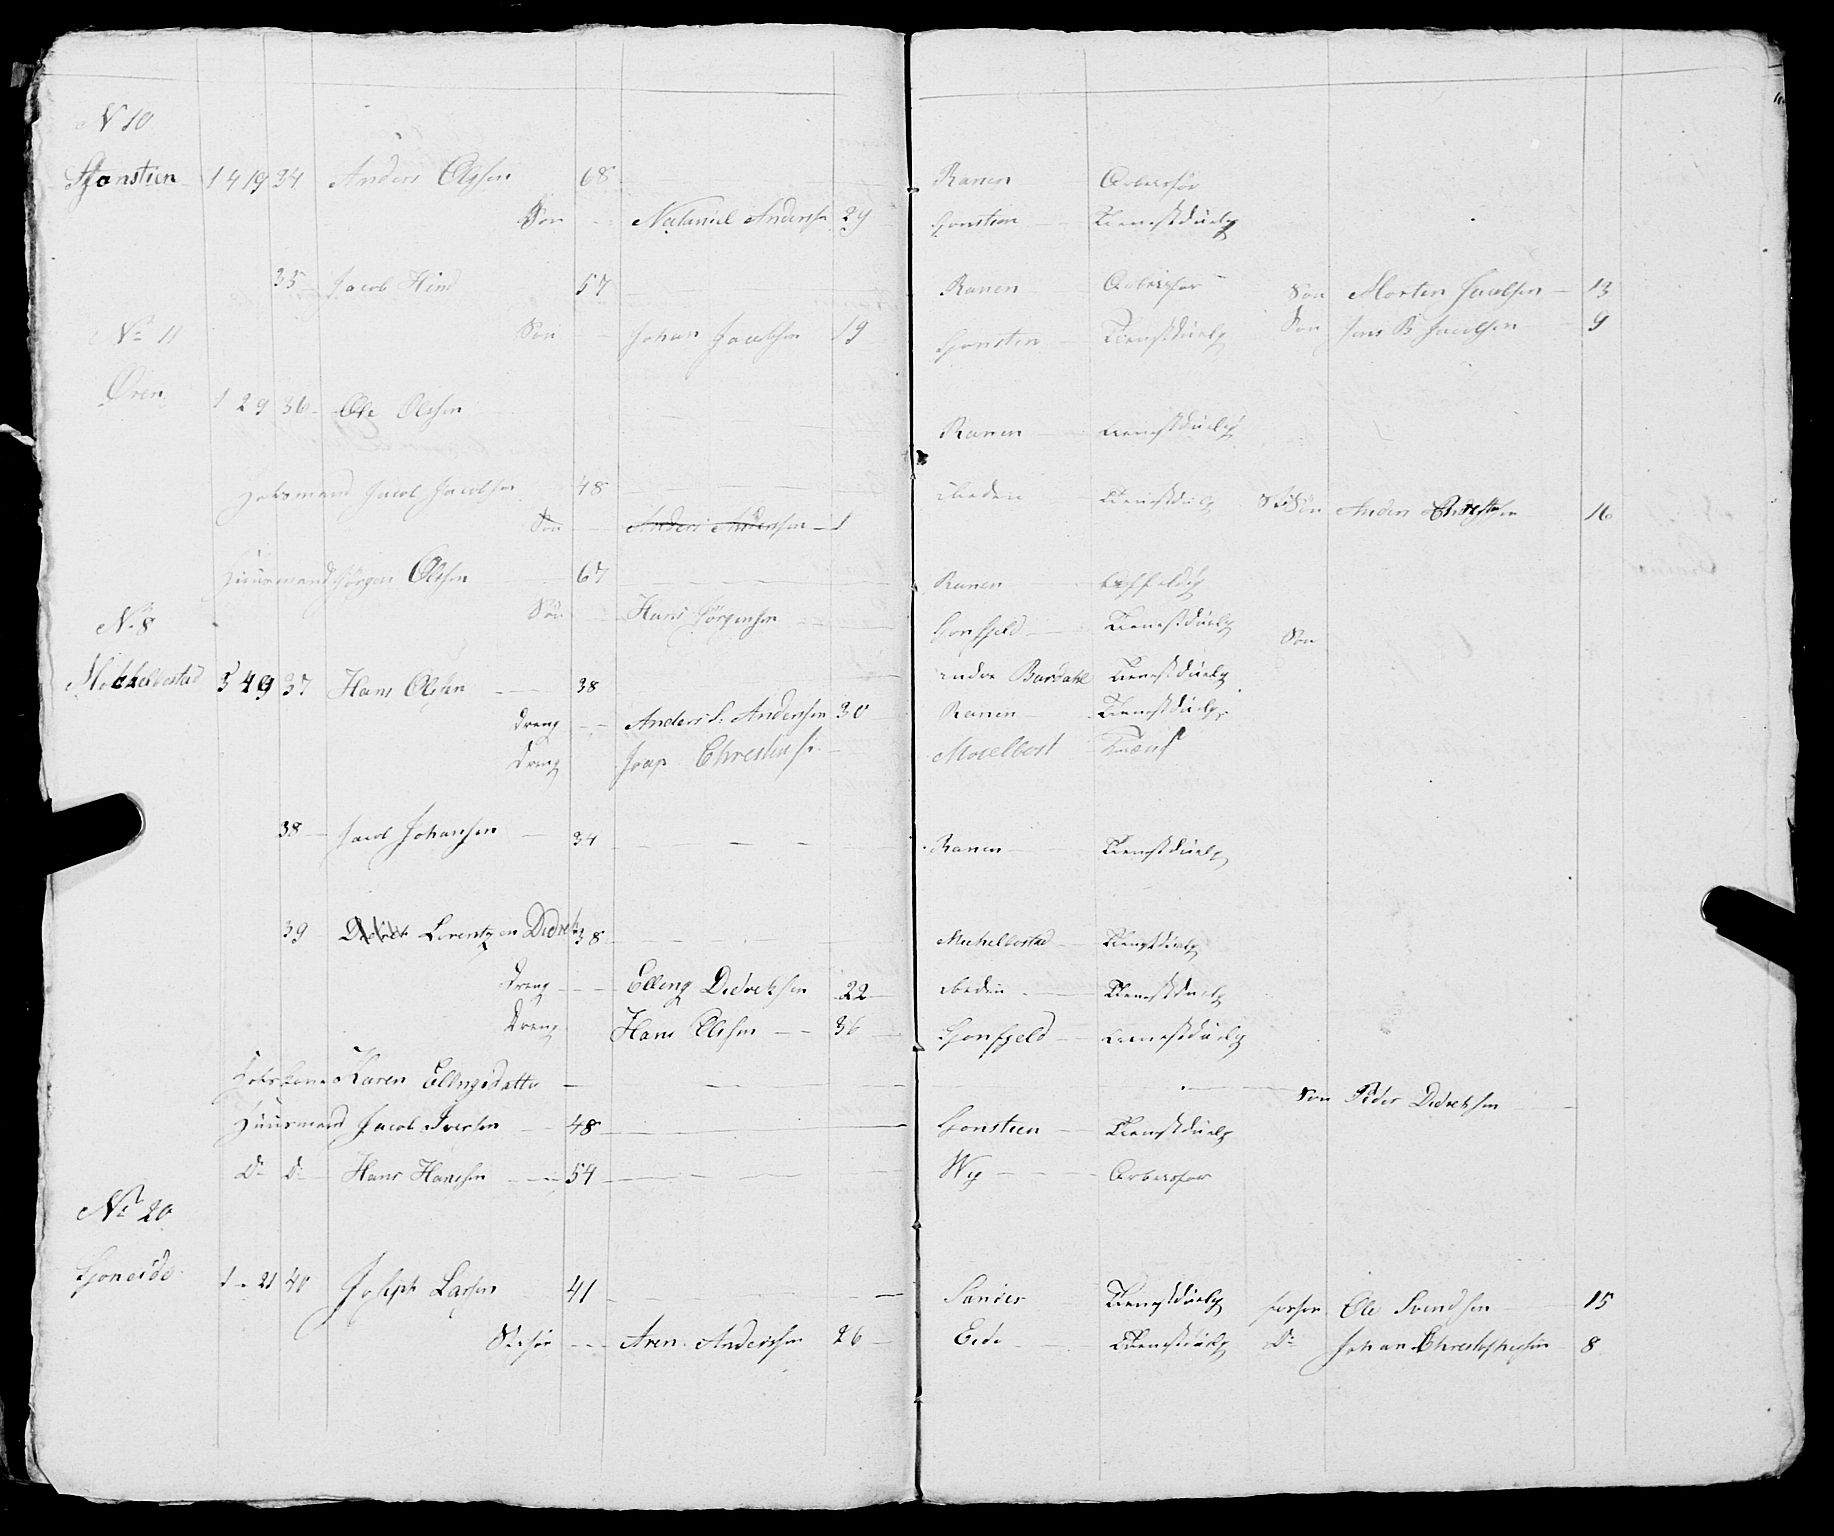 N 10
Sjonstien 1 4 19 34 Anders Olssen 68 Ranen Arbersfør
Søn Nataniel Andersen 29 Sjonstien Tienestdüelig
35 Jacob Hind 57 Ranen Arbersfør Søn Morten Jacobsen 13
N 11 Søn Johan Jacobsen 19 Sjonstien Tienestdüelig Søn Jens B Jacobsen 9
Øren 1 2 9 36 Ole Olssen Ranen Tienestdüelig
Jacob Jacobsen 48 ibeden Tienestdüelig Søn Anders 16
Søn Anders Andersen 1
Huusmand Jørgen Olssen 67 Ranen
N 8 Søn Hans Jørgensen Sjonfjeld Tienestdüelig Søn
Mokkelbostad 5 4 9 37 Hans Olssen 38 indre Bardahl Tienestdüelig
Dreng Anders S. Andersen 30 Ranen Tienestdüelig
Dreng Moselbost
38 Jacob Johansen 34 Ranen Tienestdüelig
39 Lorentzen Didrik 38 Mechelbostad Tienestdüelig
Dreng Elling Didriksen 22 ibeden Tienestdüelig
Dreng Hans Olssen 36 Sjonfjeld Tienestdüelig
Karen Ellingsdatter Søn Peder Didriksen
Huusmand Jacob Iversen 48 Sjonstien Tienestdüelig
Do Do Hans Hansen 54 Wig Arbersfør
No 20
Sjoneide 1 - 21 40 Joseph Larsen 41 Sandes Tienestdüelig Ole Svendsen 15
Aren Andersen 26 Eide Tienestdüelig Do Johan Christophersen 8